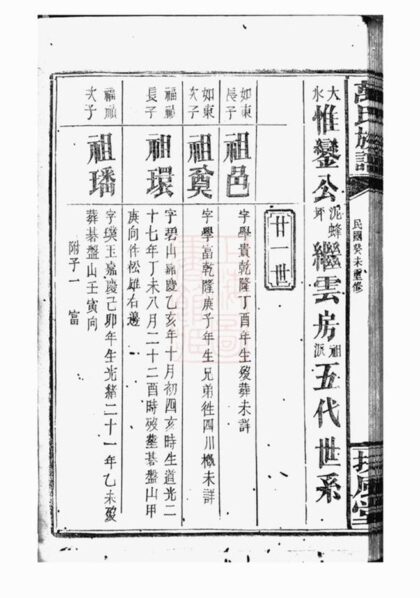 萬氏族譜
民國癸未重修
扶風堂
大水 惟鑾公 泥蜂坪 繼雲房 祖派 五代世系
廿一世
如東長子
祖邑
字學貴乾隆丁酉年生歿葬未詳
如東次子
祖奠
字學富乾隆庚子年生兄弟徃四川機未詳
福長子
祖環
字碧山嘉慶乙亥年十月初四亥時生道光二
十七年丁未八月二十二酉時歿墓碁盤山甲
庚向件松雄右邊
福次子
祖璠
字璵玉嘉慶己卯年生光緒二十一年乙未歿
葬碁盤山壬寅向
附子一 富